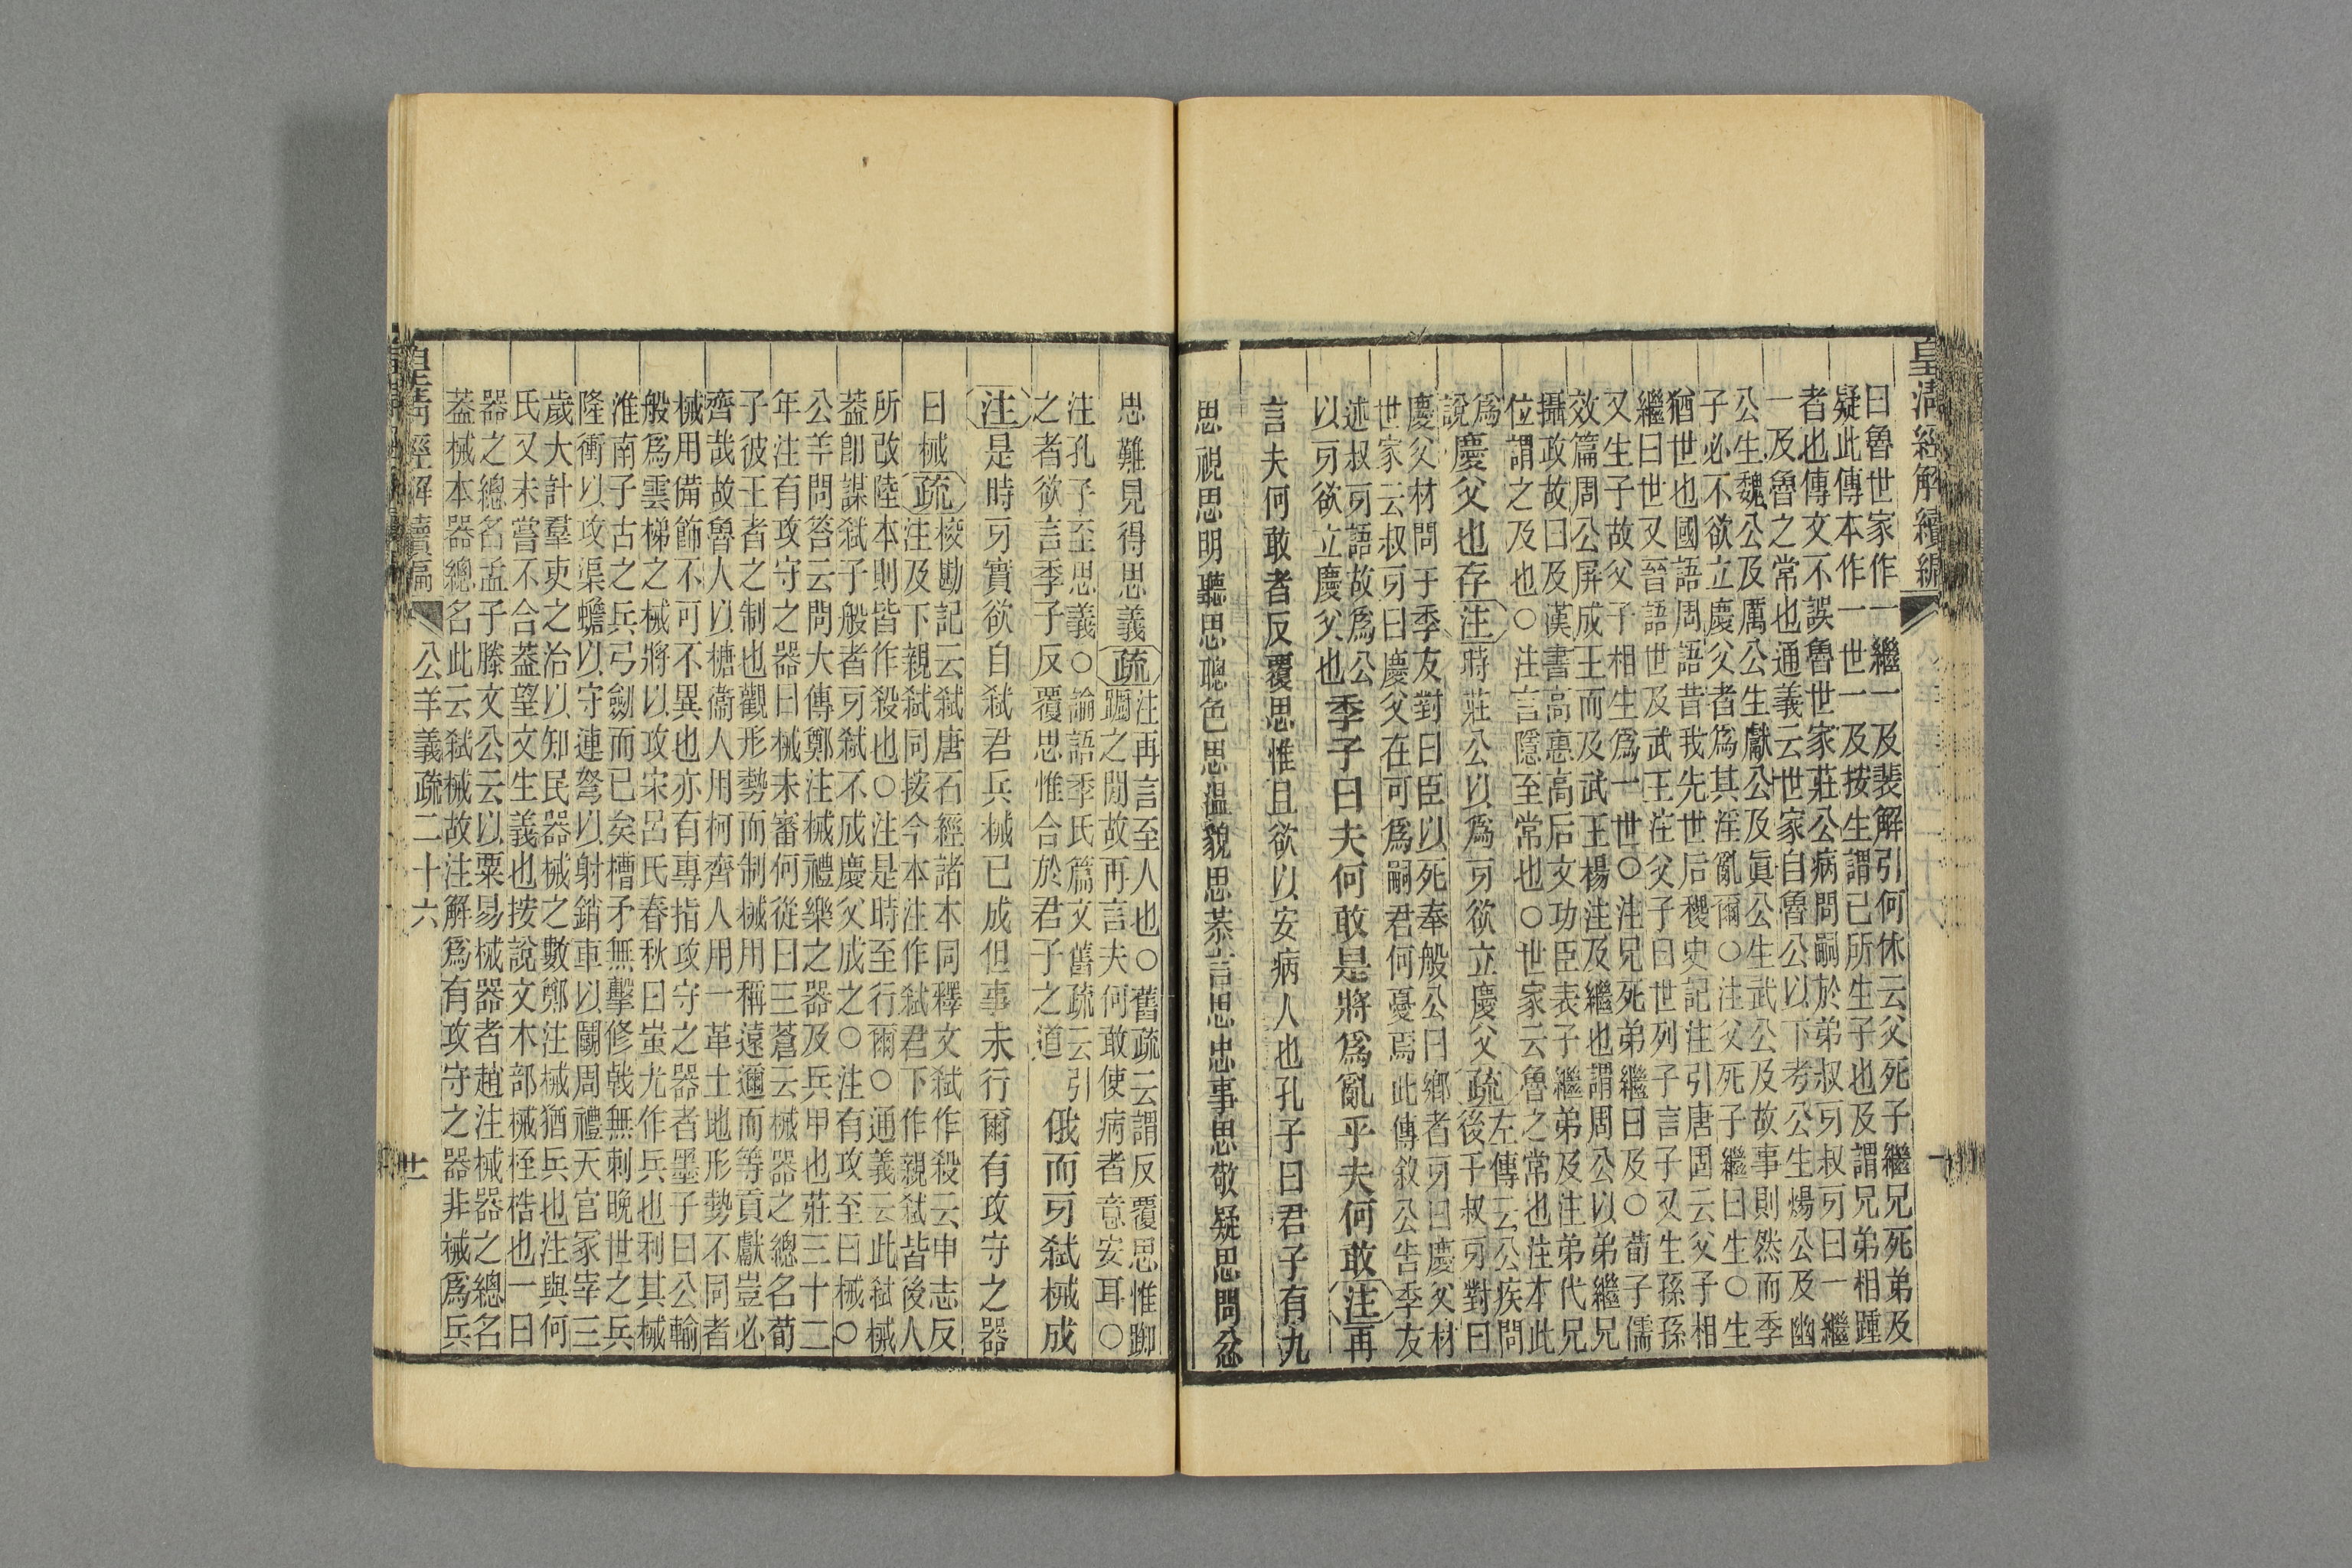 皇清經解續編
曰魯世家作一繼一及裴解引何休云父死子繼兄死弟及
疑此傳本作一世一及按生謂已所生子也及謂兄弟相踵
者也傳文不誤魯世家莊公病問嗣於弟叔牙叔牙曰一繼
一及魯之常也通義云世家自魯公以下考公生煬公及幽
公生魏公及厲公生獻公及眞公生武公及故事則然而季
子必不欲立慶父者爲其淫亂爾○注父死子繼曰生○生
猶世也國語周語昔我先世后稷史記注引唐固云父子相
繼曰世又晉語世及武王注父子曰世列子言子又生孫孫
又生子故父子相生爲一世○注兄死弟繼曰及○荀子儒
效篇周公屏成王而及武王楊注及繼也謂周公以弟繼兄
攝政故曰及漢書高惠高后文功臣表子繼弟及注弟代兄
位謂之及也○注言隱至常也○世家云魯之常也注本此
爲
說
慶父也存注時莊公以爲牙欲立慶父疏
左傳云公疾問
後于叔牙對曰
慶父材問于季友對曰臣以死奉般公曰鄉者牙曰慶父材
世家云叔牙曰慶父在可爲嗣君何憂焉此傳敘公告季友
述叔牙語故爲公
以牙欲立慶父也
季子曰夫何敢是將爲亂乎夫何敢注再
言夫何敢者反覆思惟且欲以安病人也孔子曰君子有九
思視思明聽思聰色思溫貌思恭言思忠事思敬疑思問忿
思難見得思義疏
注再言至人也○舊疏云謂反覆思惟踟
躕之閒故再言夫何敢使病者意安耳○
注孔子至思義○論語季氏篇文舊疏云引
之者欲言季子反覆思惟合於君子之道
俄而牙弑械成
注是時牙實欲自弑君兵械已成但事未行爾有攻守之器
曰械疏
校勘記云弑唐石經諸本同釋文弑作殺云申志反
注及下親弑同按今本注作弑君下作親弑皆後人
所改陸本則皆作殺也○注是時至行爾○通義云此弑械
葢卽謀弑子般者牙弑不成慶父成之○注有攻至曰械○
公羊問答云問大傳鄭注械禮樂之器及兵甲也莊三十二
年注有攻守之器曰械未審何從曰三蒼云械器之總名荀
子彼王者之制也觀形勢而制械用稱遠邇而等貢獻豈必
齊哉故魯人以榶衞人用柯齊人用一革土地形勢不同者
械用備飾不可不異也亦有專指攻守之器者墨子曰公輸
般爲雲梯之械將以攻宋呂氏春秋曰蚩尤作兵也利其械
淮南子古之兵弓劍而已矣槽矛無擊修戟無刺晚世之兵
隆衝以攻渠蟾以守連弩以射銷車以鬭周禮天官冢宰三
歲大計羣吏之治以知民器械之數鄭注械猶兵也注與何
氏又未嘗不合葢望文生義也按說文木部械桎梏也一曰
器之總名孟子滕文公云以粟易械器者趙注械器之總名
葢械本器總名此云弑械故注解爲有攻守之器非械爲兵
皇清經解續編
公羊義疏二十六